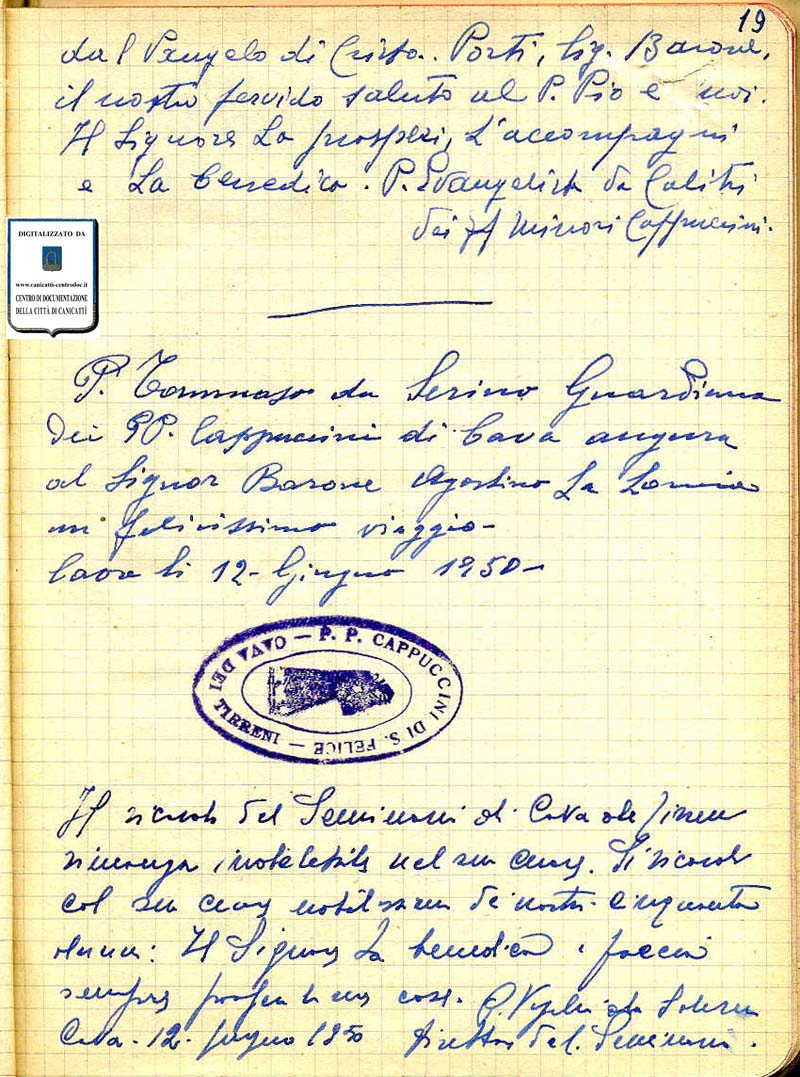 19
dal Vangelo di Cristo. Porti, Sig. Barone,
il nostro fervido saluto al P. Pio e noi.
Il Signore La prosperi, L'accompagni
e La benedica. P. Evangelista da Calitri
dei ff Minori Cappuccini.
DIGITALIZZATO DA
www.canicatti-centrodoc.it
CENTRO DI DOCUMENTAZIONE
DELLA CITTÀ DI CANICATTÌ
P. Tommaso da Serino Guardiano
dei PP. Cappuccini di Cava augura
al Signor Barone Agostino La Lomia
un felicissimo viaggio-
Cava lì 12- Giugno 1950-
P. P. CAPPUCCINI DI S. FELICE — CAVA DEI TIRRENI —
Il ricordo del Seminario di Cava dei Tirreni
rimanga indelebile nel suo cuore. Si ricordi
col suo cuore nobilissimo dei nostri cinquanta
alunni: Il Signore La benedica e faccia
sempre cose. P. da Salerno
Cava - 12 - giugno 1950 Direttore del Seminario.